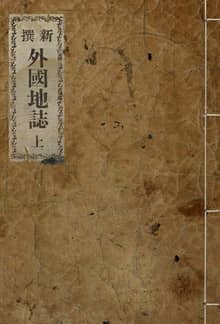 新撰
外國地誌
上